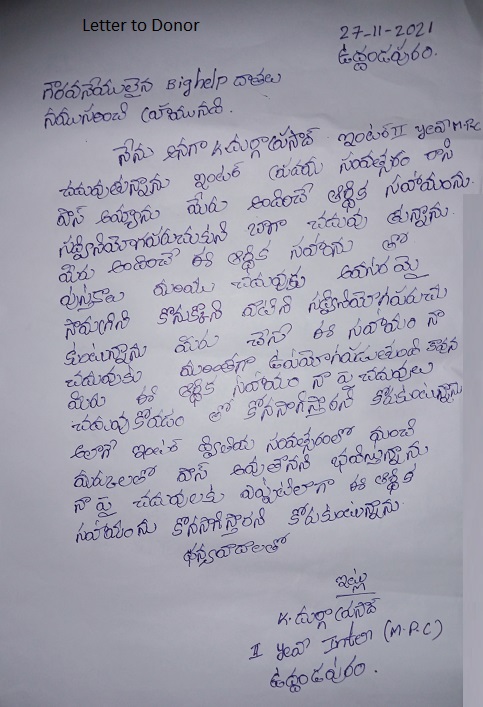 Letter to Donor
27-11-2021
ఉద్దండపురం.
గౌరవనీయులైన Bighelp దాతలు
నమస్కరించి వ్రాయునది.
నేను అనగా K.దుర్గాప్రసాద్ ఇంటర్ II Year M.P.C
చదువుతున్నాను ఇంటర్ ప్రథమ సంవత్సరం రాసి
పాస్ అయ్యాను మీరు అందించే ఆర్థిక సహాయంను
సద్వినియోగపరుచుకుని బాగా చదువు తున్నాను.
మీరు అందించే ఈ ఆర్థిక సహాయం తో
పుస్తకాలు మరియు చదువుకు అవసరమై
సామగ్రిని కొనుక్కొని వాటిని సద్వినియోగపరుచు
కుంటున్నాను మీరు చేసే ఈ సహాయం నా
చదువుకు మరింతగా ఉపయోగపడుతుంది కావున
మీరు ఈ ఆర్థిక సహాయం నా పై చదువులు
చదువుకోవడం తో కొనసాగిస్తారని కోరుకుంటున్నాను
అలాగే ఇంటర్ ద్వితీయ సంవత్సరంలో మంచి
మార్కులతో పాస్ అవుతానని భావిస్తున్నాను
నా పై చదువులకు ఎప్పటిలాగా ఈ ఆర్థిక
సహాయంను కొనసాగిస్తారని కోరుకుంటున్నాను.
ధన్యవాదాలతో
ఇట్లు
K.దుర్గాప్రసాద్
II Year Inter (M.P.C)
ఉద్దండపురం.